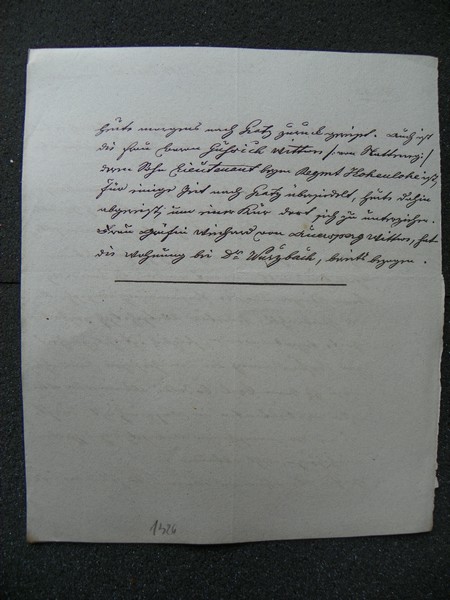 heute morgens nach Graz zurück gereist. Auch ist
die Frau Baron Witwe
deren Sohn Lieutenant beym Regmt Hohenlohe ist,
für einige Zeit nach Graz übersiedelt, heute dahin
abgereist, um einer Kur dort sich zu unterziehen.
Frau Gräfin von Auersperg Witwe, hat
die Wohnung bei Dr Wurzbach, bereits bezogen.
1526